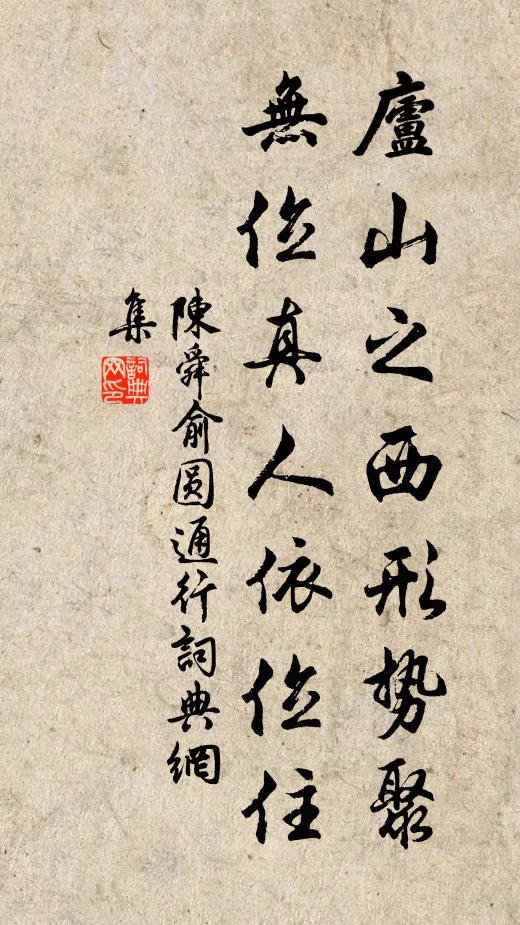 廬山之西形勢聚
無位真人依位住
陳舜俞圓通行詞典網
集
詞典網印